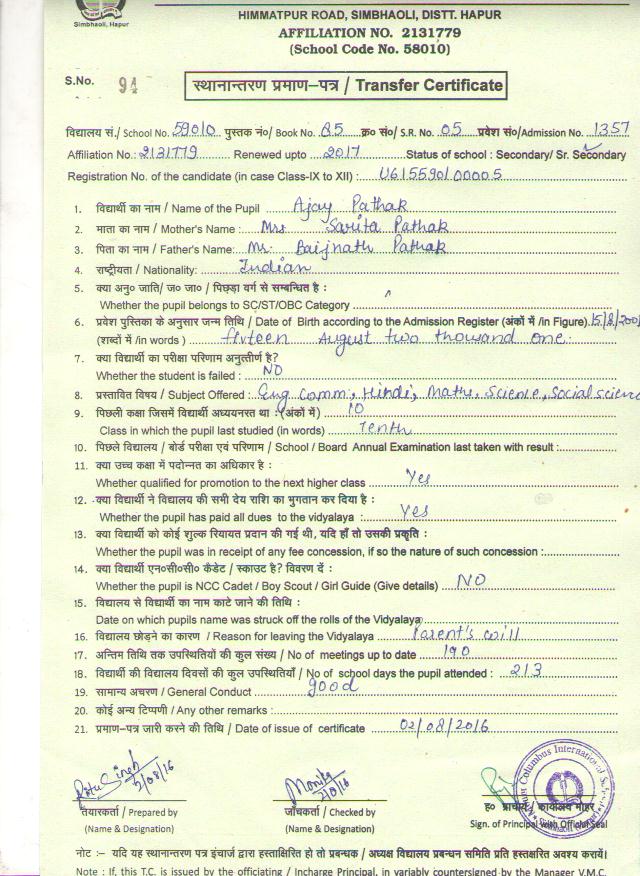 Simbhaoli, Hapur
HIMMATPUR ROAD, SIMBHAOLI, DISTT. HAPUR
AFFILIATION NO. 2131779
(School Code No. 58010)
S.No. 94
स्थानान्तरण प्रमाण–पत्र / Transfer Certificate
विद्यालय सं./ School No. 59010 पुस्तक नं०/ Book No. 05 क्र० सं०/ S.R. No. 05 प्रवेश सं०/Admission No. 1357
Affiliation No.: 2131779 Renewed upto 2017 Status of school : Secondary/ Sr. Secondary
Registration No. of the candidate (in case Class-IX to XII) : U615590100005
1. विद्यार्थी का नाम / Name of the Pupil Ajay Pathak
2. माता का नाम / Mother's Name : Mrs Sarita Pathak
3. पिता का नाम / Father's Name: Mr. Baijnath Pathak
4. राष्ट्रीयता / Nationality: Indian
5. क्या अनु० जाति/ ज० जा० / पिछड़ा वर्ग से सम्बन्धित है :
Whether the pupil belongs to SC/ST/OBC Category
6. प्रवेश पुस्तिका के अनुसार जन्म तिथि / Date of Birth according to the Admission Register (अंकों में /in Figure) 15/8/200
(शब्दों में /in words ) fifteen August two thousand one.
7. क्या विद्यार्थी का परीक्षा परिणाम अनुत्तीर्ण है?
Whether the student is failed : NO
8. प्रस्तावित विषय / Subject Offered : Eng Comm, Hindi, Maths, Science, Social scien
9. पिछली कक्षा जिसमें विद्यार्थी अध्ययनरत था :(अंकों में ) 10
Class in which the pupil last studied (in words) Tenth
10. पिछले विद्यालय / बोर्ड परीक्षा एवं परिणाम / School / Board Annual Examination last taken with result :
11. क्या उच्च कक्षा में पदोन्नत का अधिकार है :
Whether qualified for promotion to the next higher class Yes
12. क्या विद्यार्थी ने विद्यालय की सभी देय राशि का भुगतान कर दिया है :
Whether the pupil has paid all dues to the vidyalaya : Yes
13. क्या विद्यार्थी को कोई शुल्क रियायत प्रदान की गई थी, यदि हाँ तो उसकी प्रकृति :
Whether the pupil was in receipt of any fee concession, if so the nature of such concession :
14. क्या विद्यार्थी एन०सी०सी० कैडेट / स्काउट है? विवरण दें :
Whether the pupil is NCC Cadet / Boy Scout / Girl Guide (Give details) NO
15. विद्यालय से विद्यार्थी का नाम काटे जाने की तिथि :
Date on which pupils name was struck off the rolls of the Vidyalaya
16. विद्यालय छोड़ने का कारण / Reason for leaving the Vidyalaya Parent's will
17. अन्तिम तिथि तक उपस्थितियों की कुल संख्य / No of meetings up to date 190
18. विद्यार्थी की विद्यालय दिवसों की कुल उपस्थितियाँ / No of school days the pupil attended : 213
19. सामान्य अचरण / General Conduct good
20. कोई अन्य टिप्पणी / Any other remarks :
21. प्रमाण–पत्र जारी करने की तिथि / Date of issue of certificate 02/08/2016
तैयारकर्ता / Prepared by जाँचकर्ता / Checked by ह० प्राचार्य / कार्यालय मोहर
(Name & Designation) (Name & Designation) Sign. of Principal with Official Seal
नोट :– यदि यह स्थानान्तरण पत्र इंचार्ज द्वारा हस्ताक्षरित हो तो प्रबन्धक / अध्यक्ष विद्यालय प्रबन्धन समिति प्रति हस्तक्षरित अवश्य करायें।
Note : If, this T.C. is issued by the officiating / Incharge Principal, in variably countersigned by the Manager V.M.C.